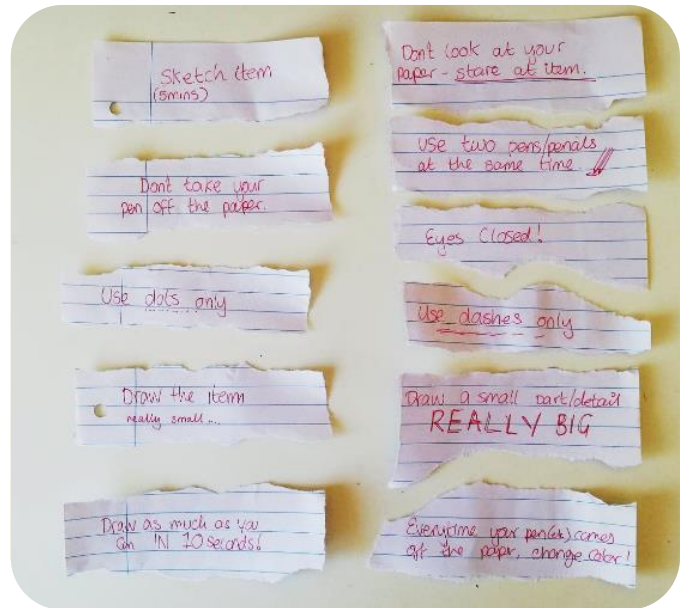 Sketch item
(5mins)
Dont take your
pen off the paper.
Use dots only
Draw the item
really small...
Draw as much as you
can IN 10 seconds!
Dont look at your
paper - stare at item.
Use two pens/pencils
at the same time
Eyes Closed!
Use dashes only
Draw a small part/detail
REALLY BIG
Everytime your pen(etc) comes
off the paper, change color!